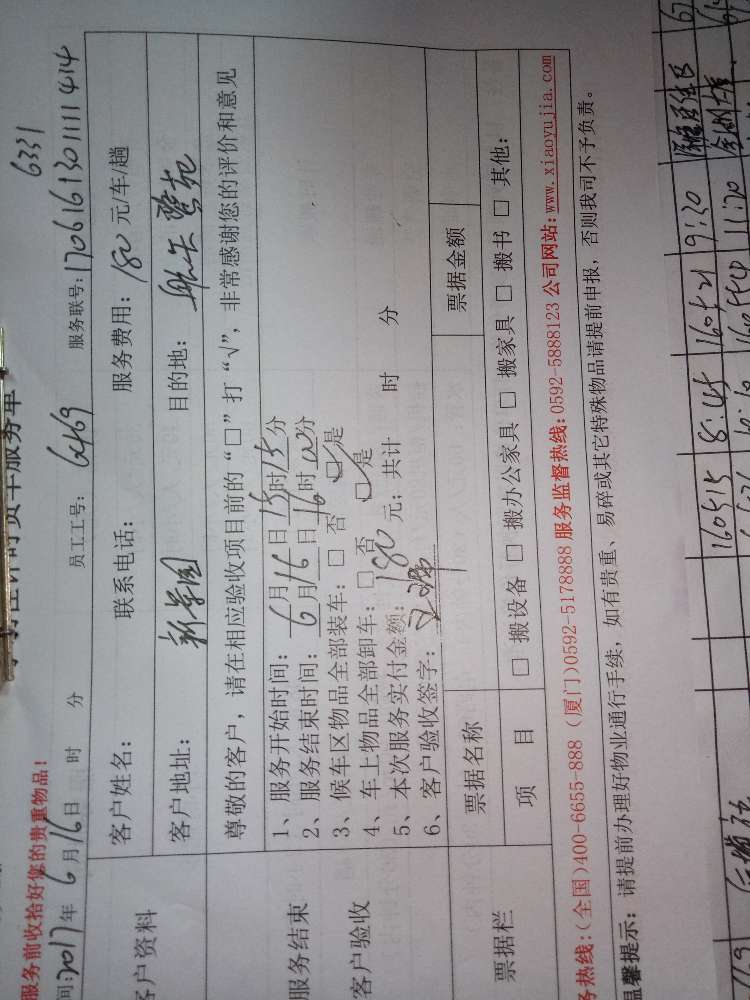 6331
服务前收拾好您的贵重物品!
间:2017年6月16日 时 分 员工工号: 6469 服务联号:1706161301111414
客户资料
客户姓名: 联系电话: 服务费用: 180 元/车/趟
客户地址: 目的地:
尊敬的客户,请在相应验收项目前的“□”打“√”,非常感谢您的评价和意见
服务结束
客户验收
1、服务开始时间: 6月16日15时15分
2、服务结束时间: 6月16日16时00分
3、候车区物品全部装车: □ 否 ☑ 是
4、车上物品全部卸车: □ 否 ☑ 是
5、本次服务实付金额: 180 元; 共计 时 分
6、客户验收签字:
票据栏
票据名称 票据金额
项 目 □ 搬设备 □ 搬办公家具 □ 搬家具 □ 搬书 □ 其他:
务热线:(全国)400-6655-888 (厦门)0592-5178888 服务监督热线:0592-5888123 公司网站:www.xiaoyujia.com
温馨提示: 请提前办理好物业通行手续, 如有贵重、易碎或其它特殊物品请提前申报, 否则我司不予负责。
160515 8:45 160521 9:20
11:20